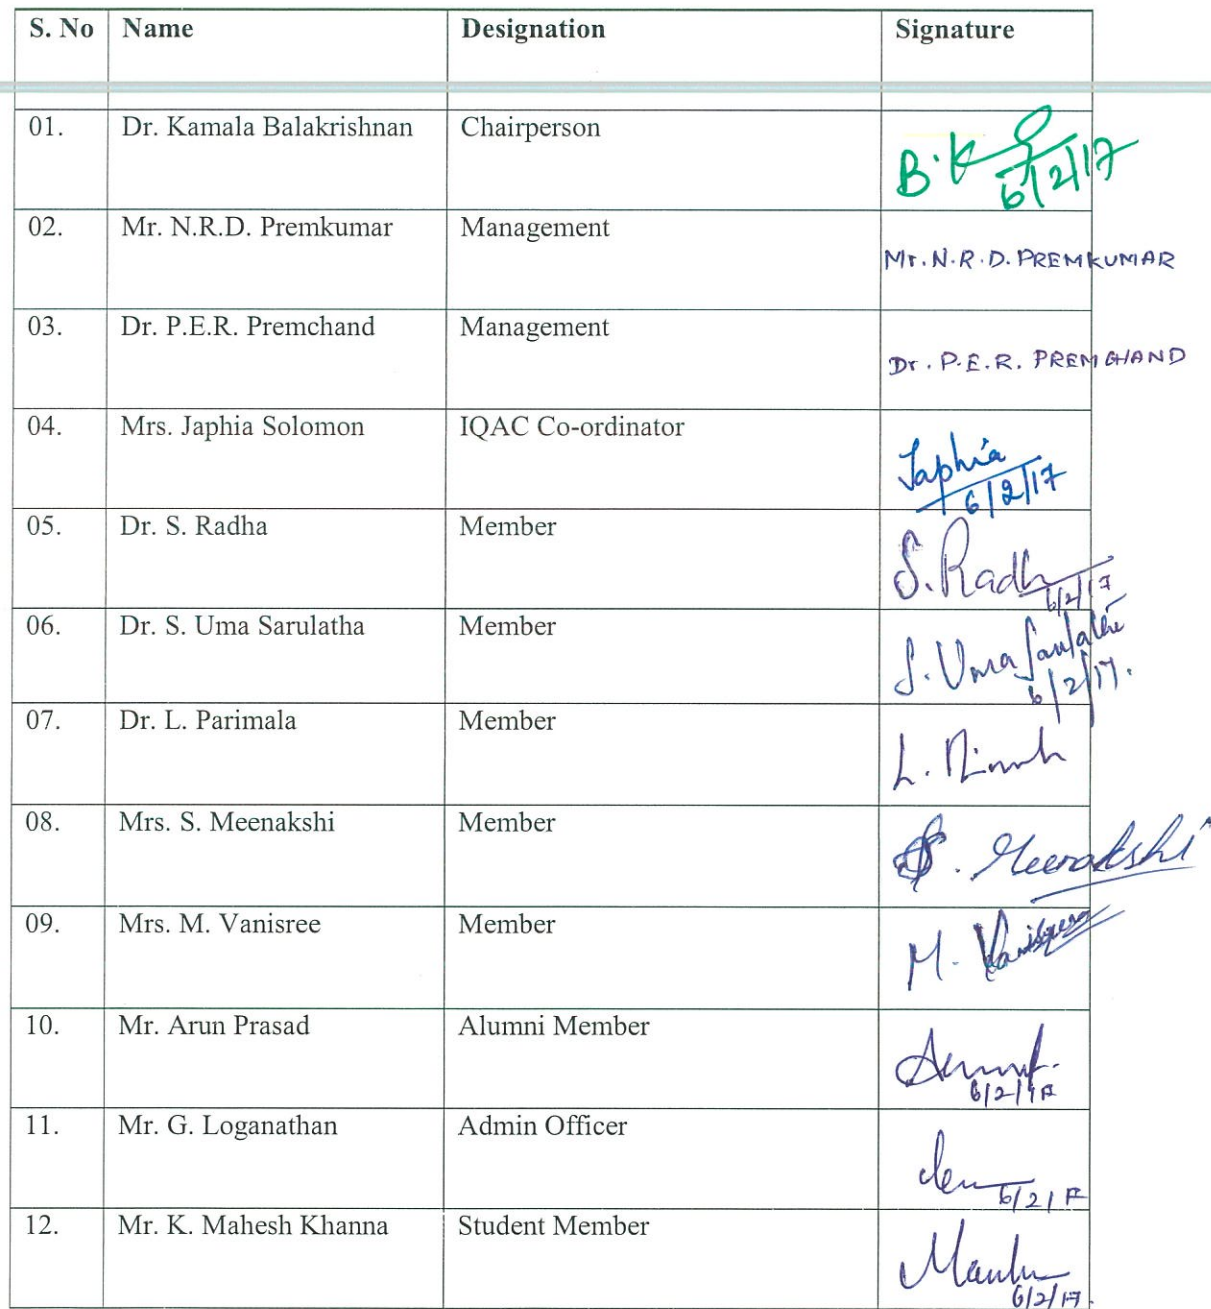 S. No Name Designation Signature
01. Dr. Kamala Balakrishnan Chairperson B.K 6/2/17
02. Mr. N.R.D. Premkumar Management Mr. N.R.D. PREMKUMAR
03. Dr. P.E.R. Premchand Management Dr. P.E.R. PREMCHAND
04. Mrs. Japhia Solomon IQAC Co-ordinator Japhia
6/2/17
05. Dr. S. Radha Member S. Radh
6/2/17
06. Dr. S. Uma Sarulatha Member S. Uma Sarulatha
6/2/17.
07. Dr. L. Parimala Member L.
08. Mrs. S. Meenakshi Member S. Meenakshi
09. Mrs. M. Vanisree Member M. Vanisree
10. Mr. Arun Prasad Alumni Member
6/2/17
11. Mr. G. Loganathan Admin Officer
6/2/17
12. Mr. K. Mahesh Khanna Student Member
6/2/17.